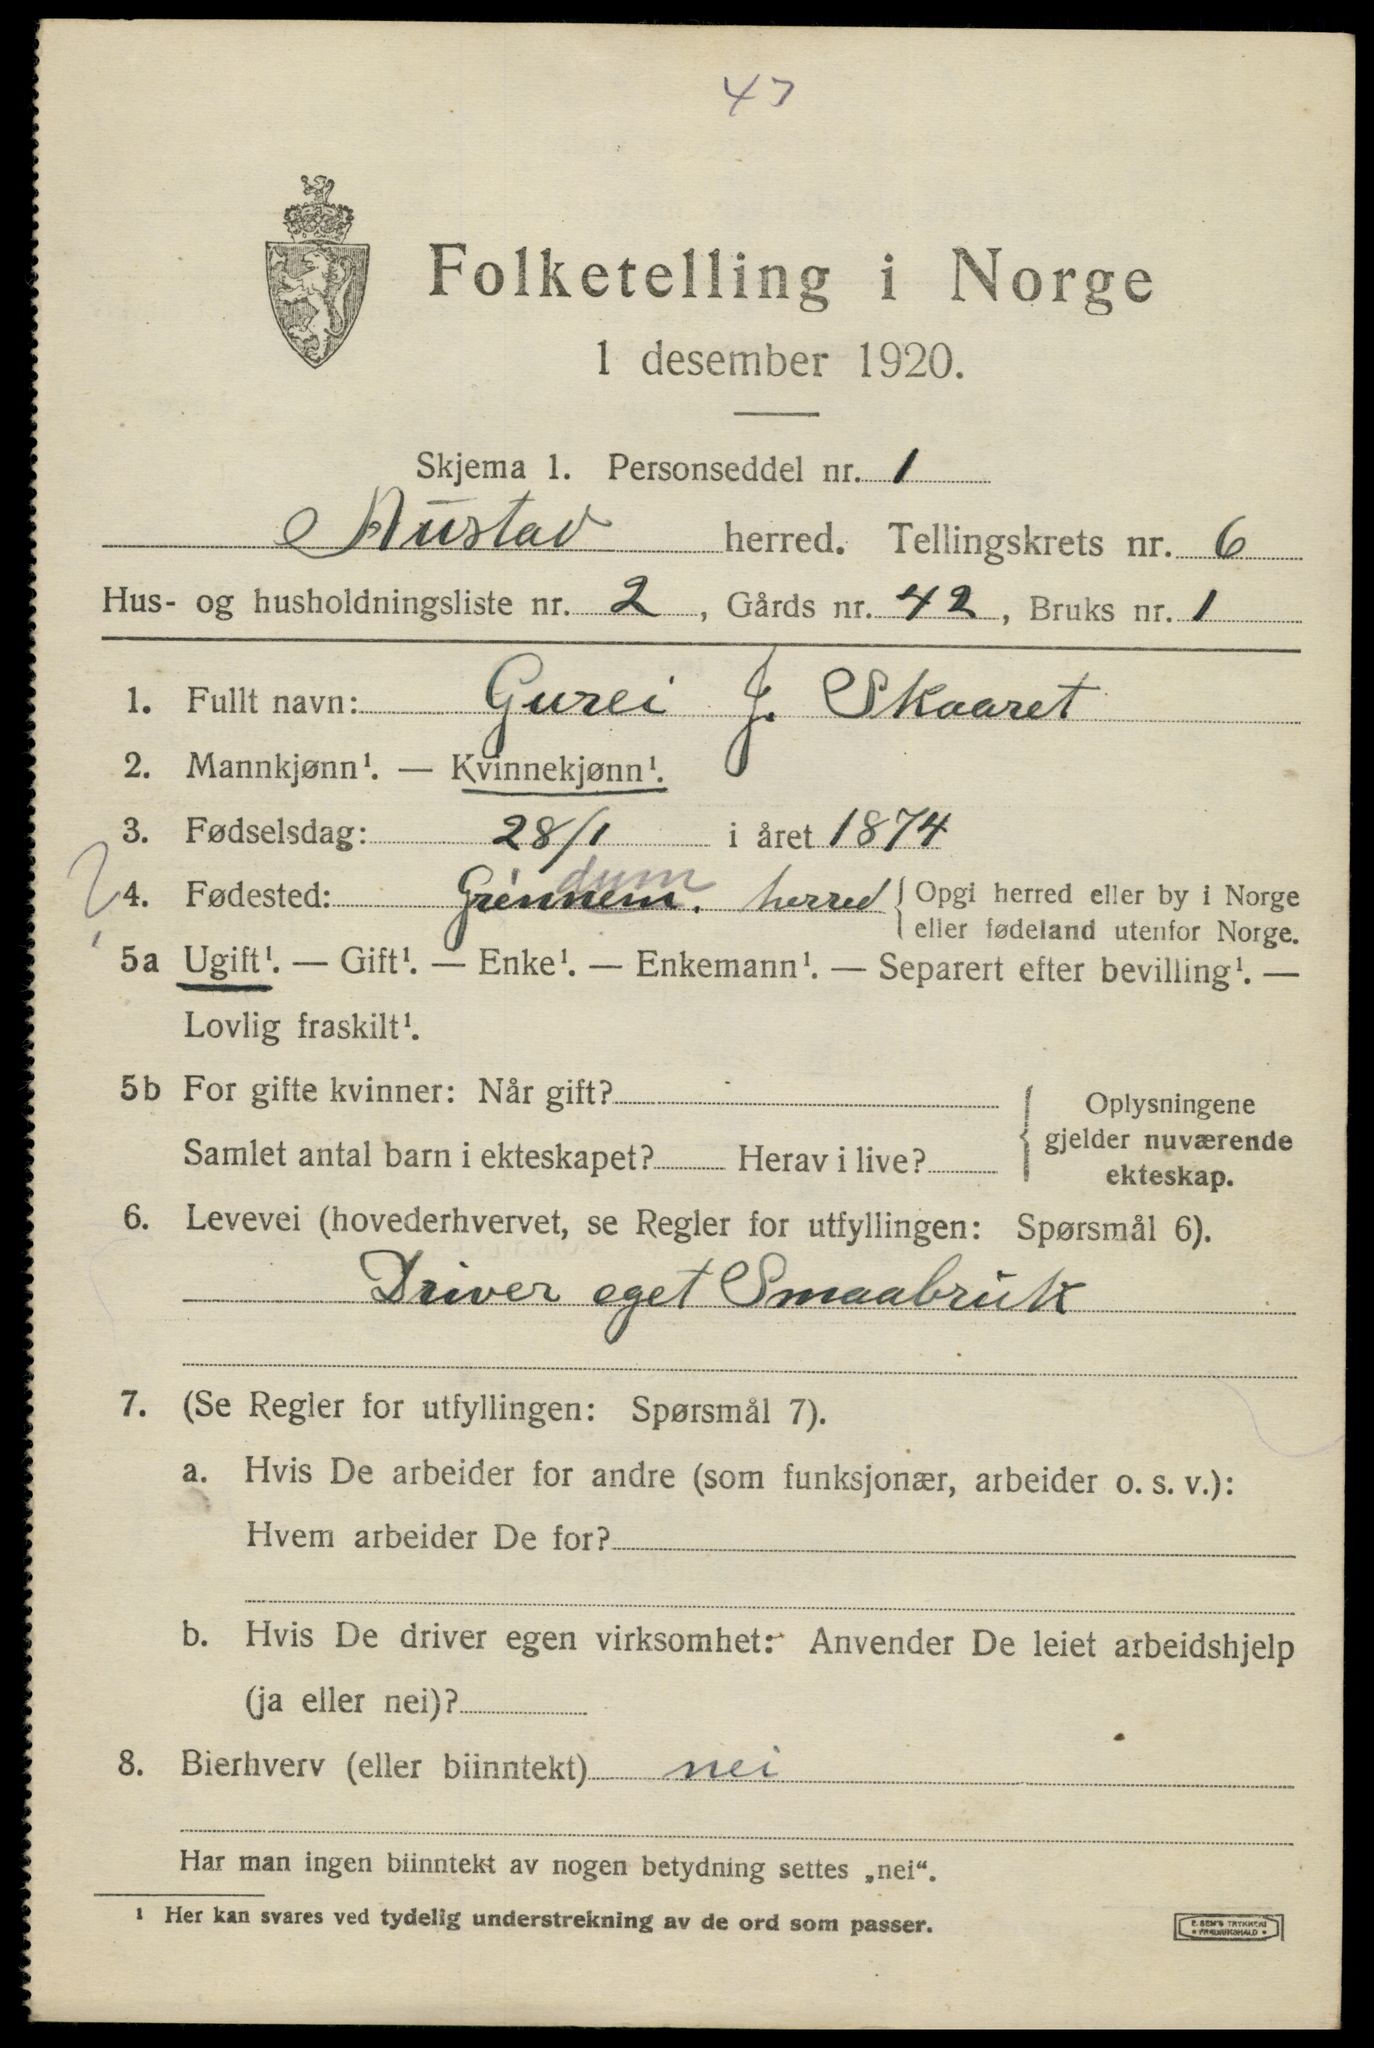 47
Folketelling i Norge
1 desember 1920.
Skjema 1. Personseddel nr. 1
Austad herred. Tellingskrets nr. 6
Hus- og husholdningsliste nr. 2, Gårds nr. 42, Bruks nr. 1
1. Fullt navn: Gurei J. Skaaret
2. Mannkjønn¹. — Kvinnekjønn¹.
3. Fødselsdag: 28/1 i året 1874
dum
?
4. Fødested: Grinnem. herred { Opgi herred eller by i Norge
eller fødeland utenfor Norge.
5a Ugift¹. — Gift¹. — Enke¹. — Enkemann¹. — Separert efter bevilling¹. —
Lovlig fraskilt¹.
5b For gifte kvinner: Når gift?
Samlet antal barn i ekteskapet? Herav i live?
{ Oplysningene
gjelder nuværende
ekteskap.
6. Levevei (hovederhvervet, se Regler for utfyllingen: Spørsmål 6).
Driver eget Smaabruk
7. (Se Regler for utfyllingen: Spørsmål 7).
a. Hvis De arbeider for andre (som funksjonær, arbeider o. s. v.):
Hvem arbeider De for?
b. Hvis De driver egen virksomhet: Anvender De leiet arbeidshjelp
(ja eller nei)?
8. Bierhverv (eller biinntekt) nei
Har man ingen biinntekt av nogen betydning settes „nei“.
¹ Her kan svares ved tydelig understrekning av de ord som passer.
E. SEM'S TRYKKERI
* FREDRIKSHALD *